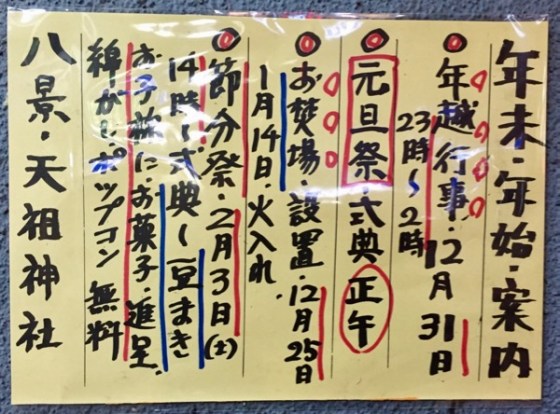 年末・年始・案内
年越行事・12月31日
23時〜2時
元旦祭・式典 正午
お焚場・設置・12月25日
1月14日・火入れ
節分祭・2月3日(土)
14時〜式典〜豆まき
お子様にお菓子・進呈
綿がし・ポップコン 無料
八景・天祖神社